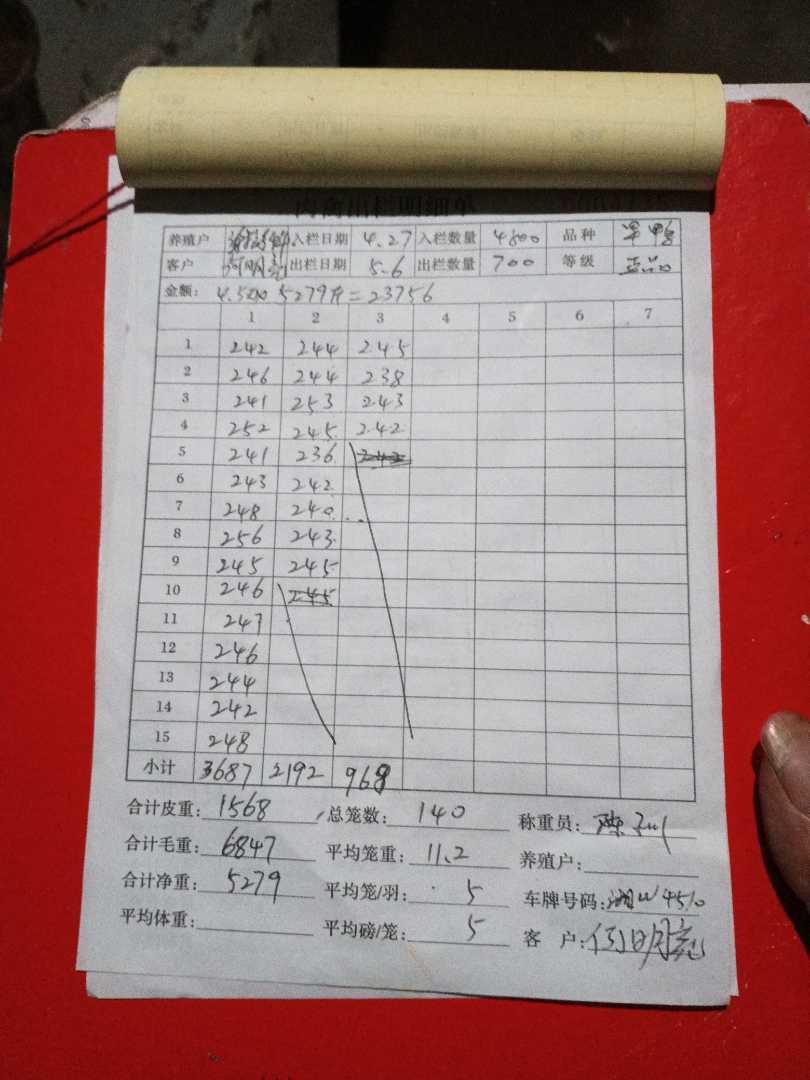 肉禽出栏明细单
养殖户 入栏日期 4.27 入栏数量 4800 品种
客户 何明亮 出栏日期 5.6 出栏数量 700 等级
金额: 5279斤=23756
1 2 3 4 5 6 7
1 242 244 245
2 246 244 238
3 241 253 243
4 252 245 242
5 241 236 242
6 243 242
7 248 240
8 256 243
9 245 245
10 246 245
11 247
12 246
13 244
14 242
15 248
小计 3687 2192 968
合计皮重: 1568 总笼数: 140 称重员: 陈
合计毛重: 6847 平均笼重: 11.2 养殖户:
合计净重: 5279 平均笼/羽: 5 车牌号码: 4510
平均体重: 平均磅/笼: 5 客 户: 何明亮